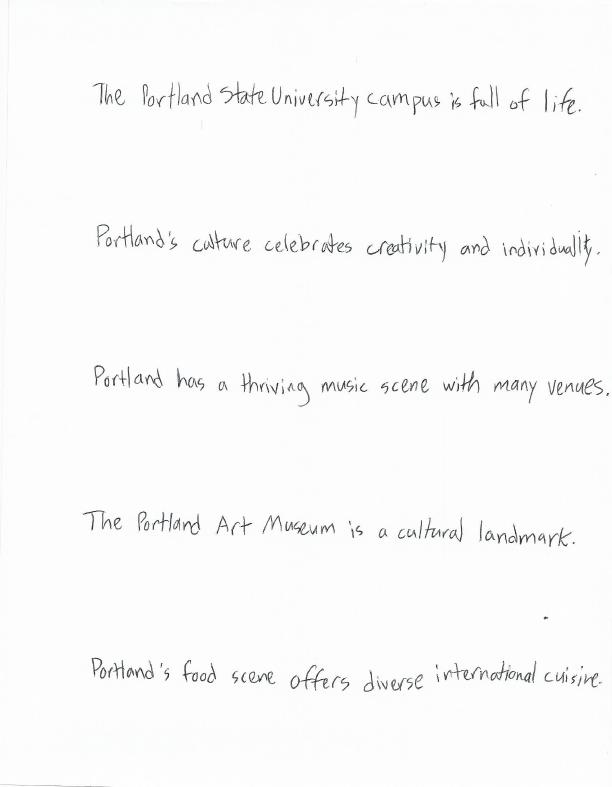 The Portland State University campus is full of life.
Portland's culture celebrates creativity and individuality.
Portland has a thriving music scene with many venues.
The Portland Art Museum is a cultural landmark.
Portland's food scene offers diverse international cuisine.